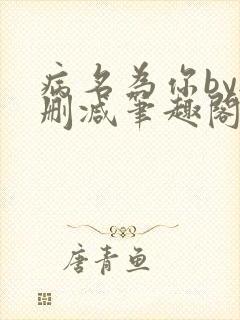 病名为你by
删减笔趣阁
唐青鱼